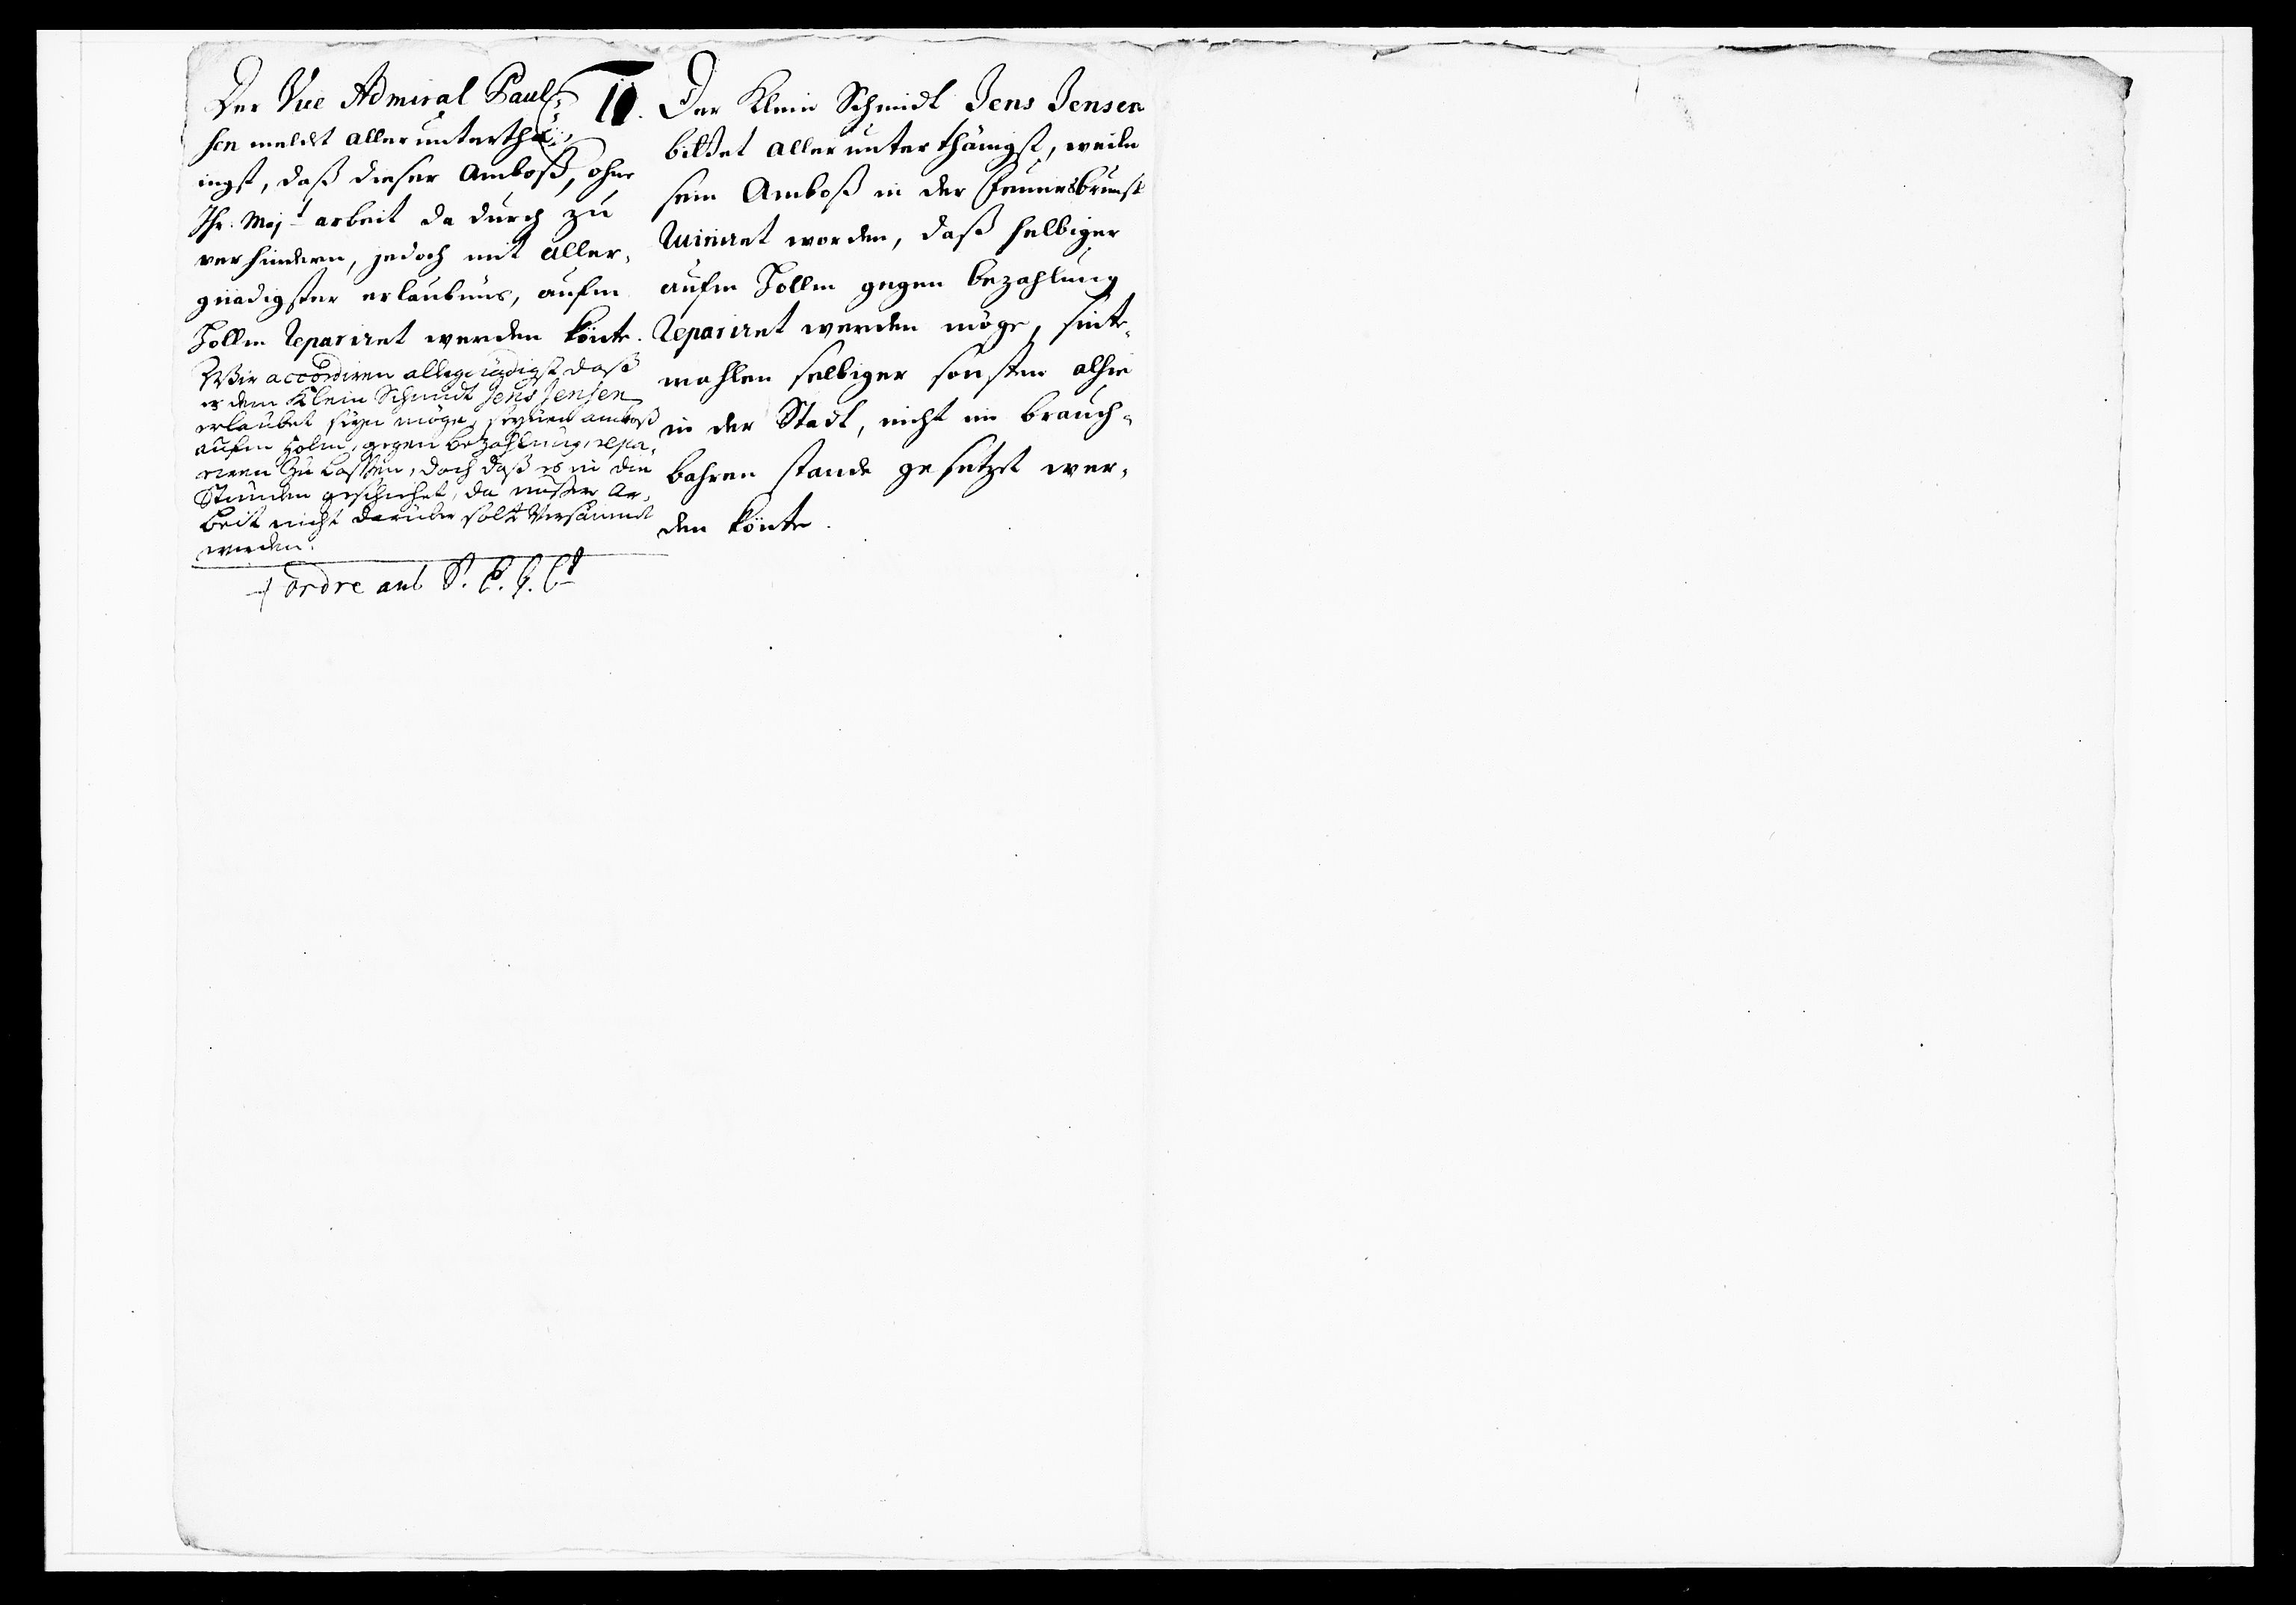 Der Vice Admiral Paul¬
sen meldet allerunterthä¬
nigst, daß dieser Amboß, ohne
Ihr: Majt arbeit da durch zu
verhindern, jedoch mit aller¬
gnädigster erlaubnis, aufm
Hollm repariret werden könte.
Wir accordiren allergnädigst daß
es dem Klein Schmidt Jens Jensen
erlaubet seyn möge, seynen amboß
aufm Holm, gegen bezahlung, repa¬
riren zu lassen, doch daß es in die
Stunden geschiehet, da unser Ar¬
beit nicht darüber solte Versäumet
werden.
ordre aub
10.
Der Klein Schmidt Jens Jensen
bittet allerunterthänigst, weiln
sein Amboß in der Feuersbrunst
ruiniret worden, daß selbiger
aufm Hollm gegen bezahlung
repariret werden möge, sinte¬
mahlen selbiger sonsten alhie
in der Stadt, nicht im brauch¬
bahren stande gesetzet wer¬
den könte.